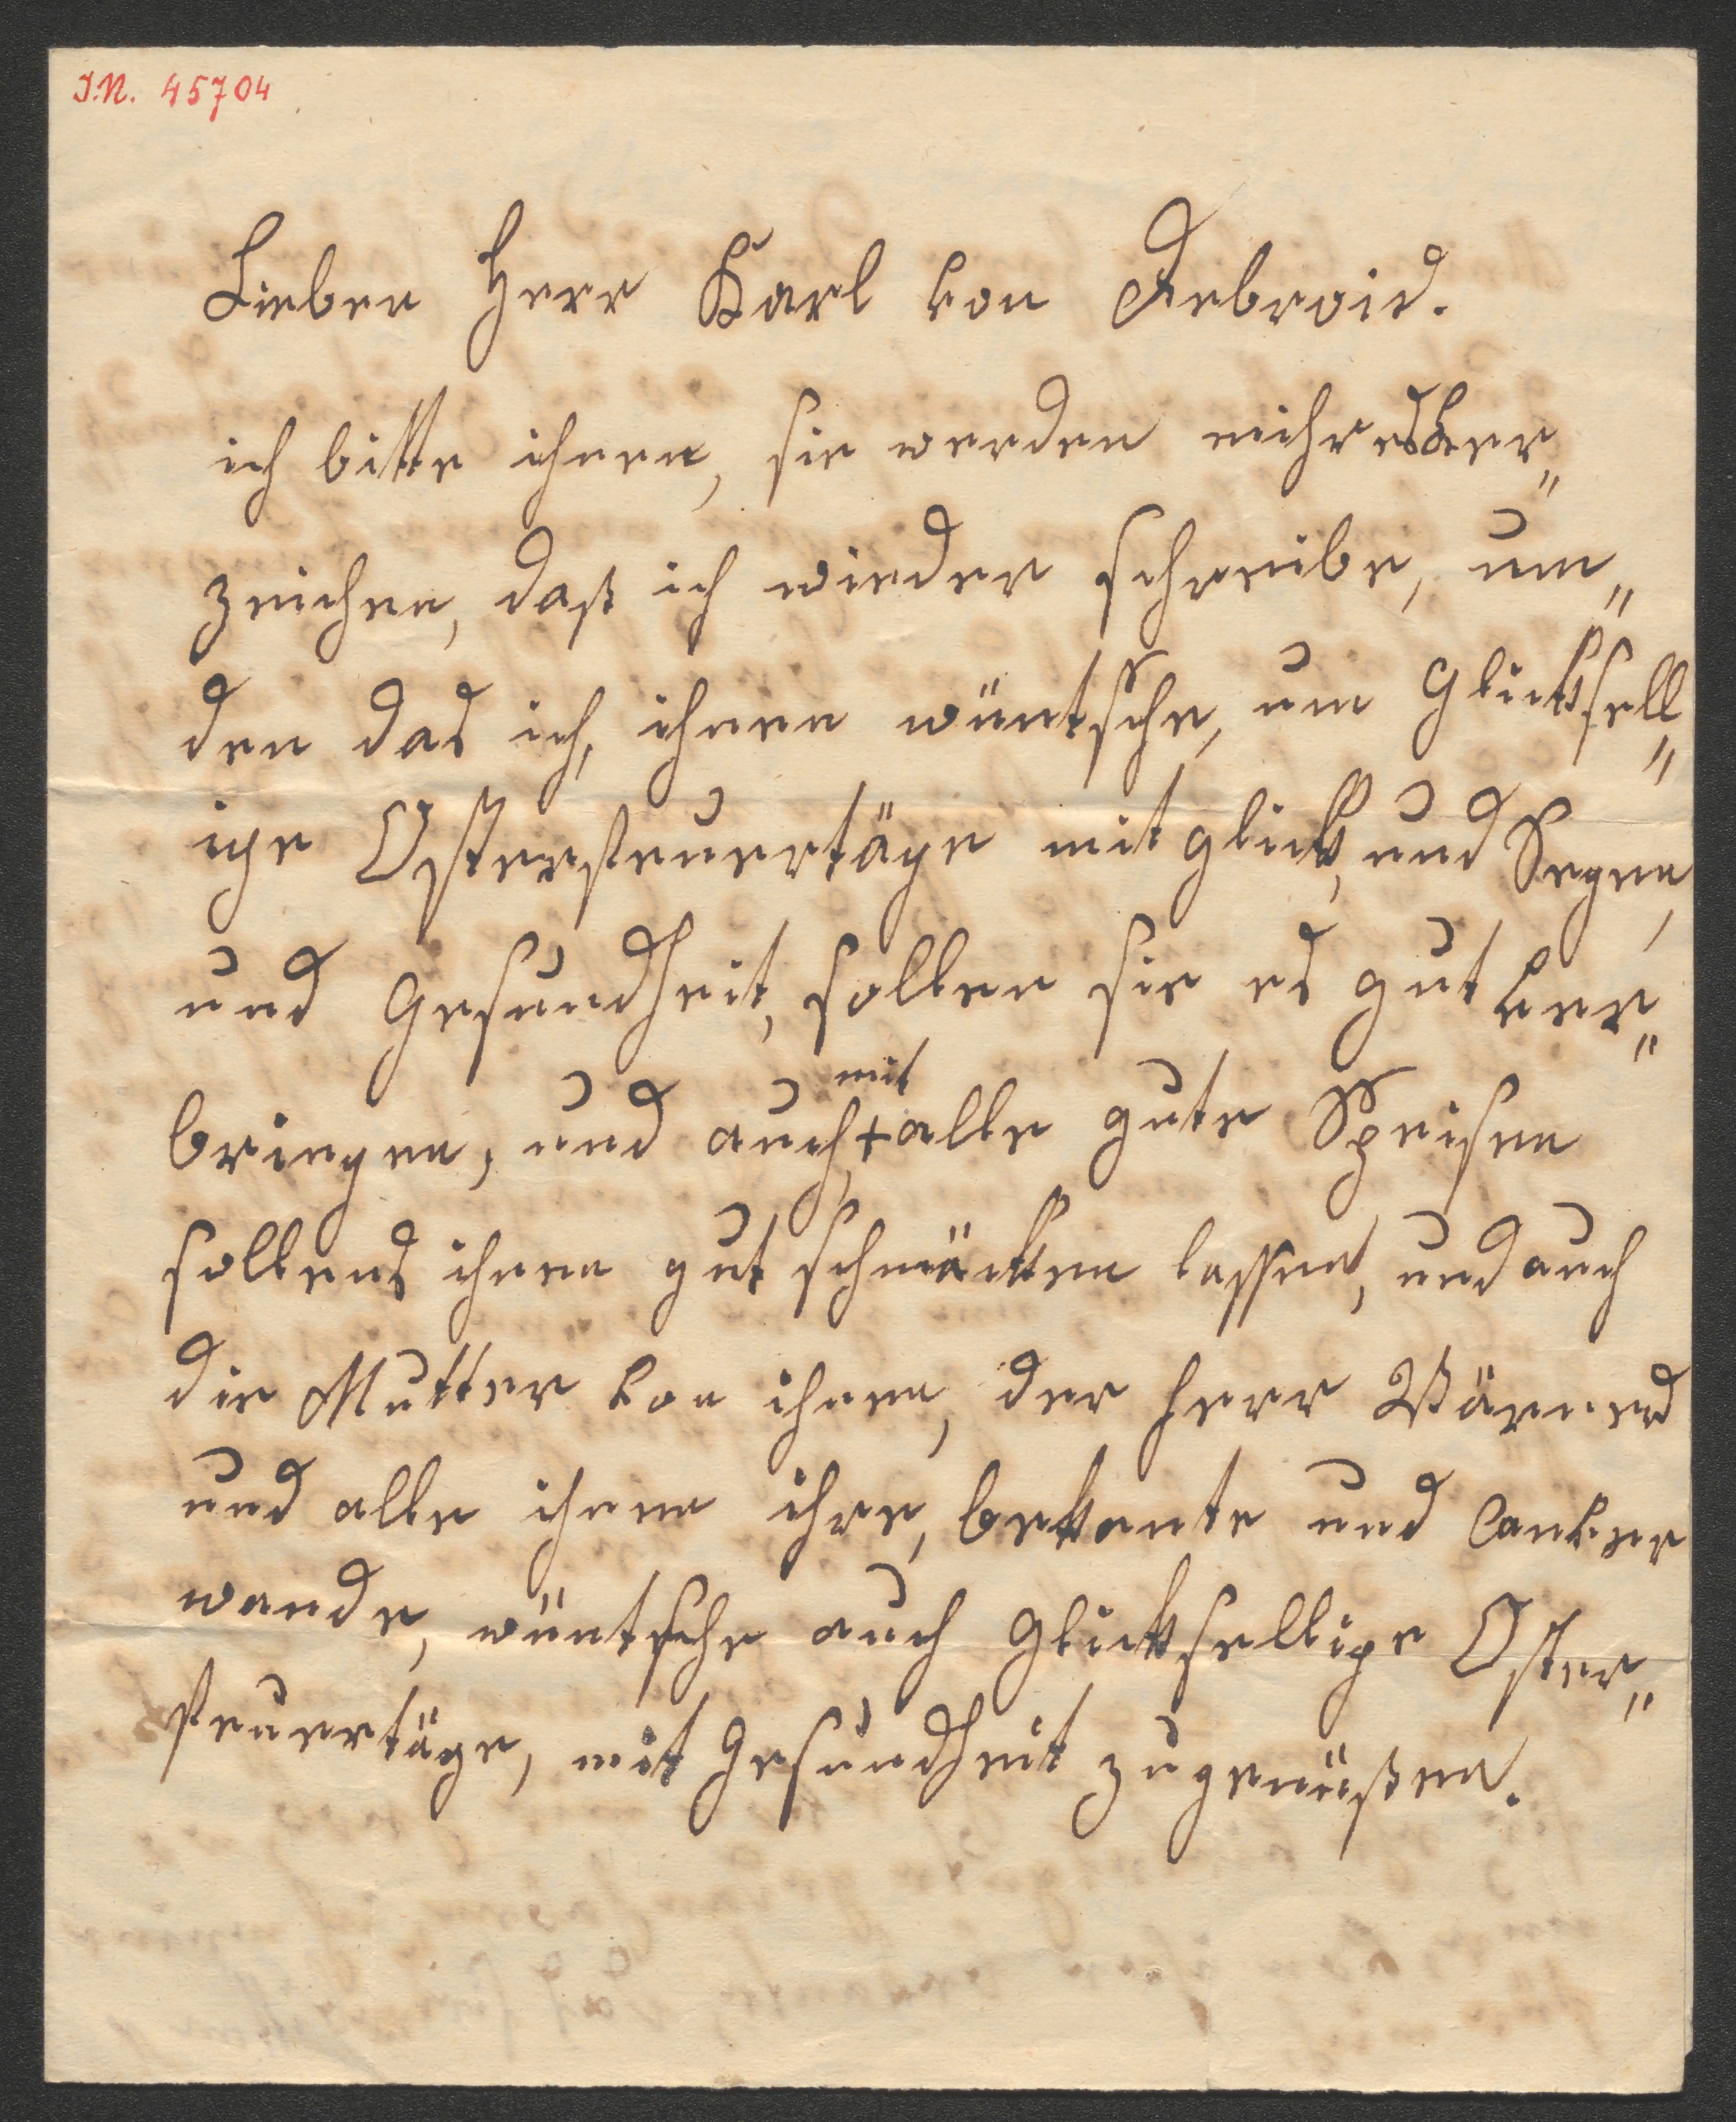 I.N. 45704
Lieber Herr Karl von
ich bitte ihnen, sie werden mihr es ver„
zeichen, daß ich wieder schreibe, um„
den das ich, ihnen wüntsche, um Glicksell„
ige Osterfeuertäge mit glick, und Segen,
und Gesundheit, sollen sie es gut ver„
bringen, und auch, + alle gute Speisen
mit
sollens ihnen gut schmäcken lassen, und auch
die Mutter von ihnen, der Herr Wärner
und alle ihnen ihre, bekante und anver
wande, wüntsche auch Glicksellige Oster„
feuertäge, mit Gesundheit zu genüßen.